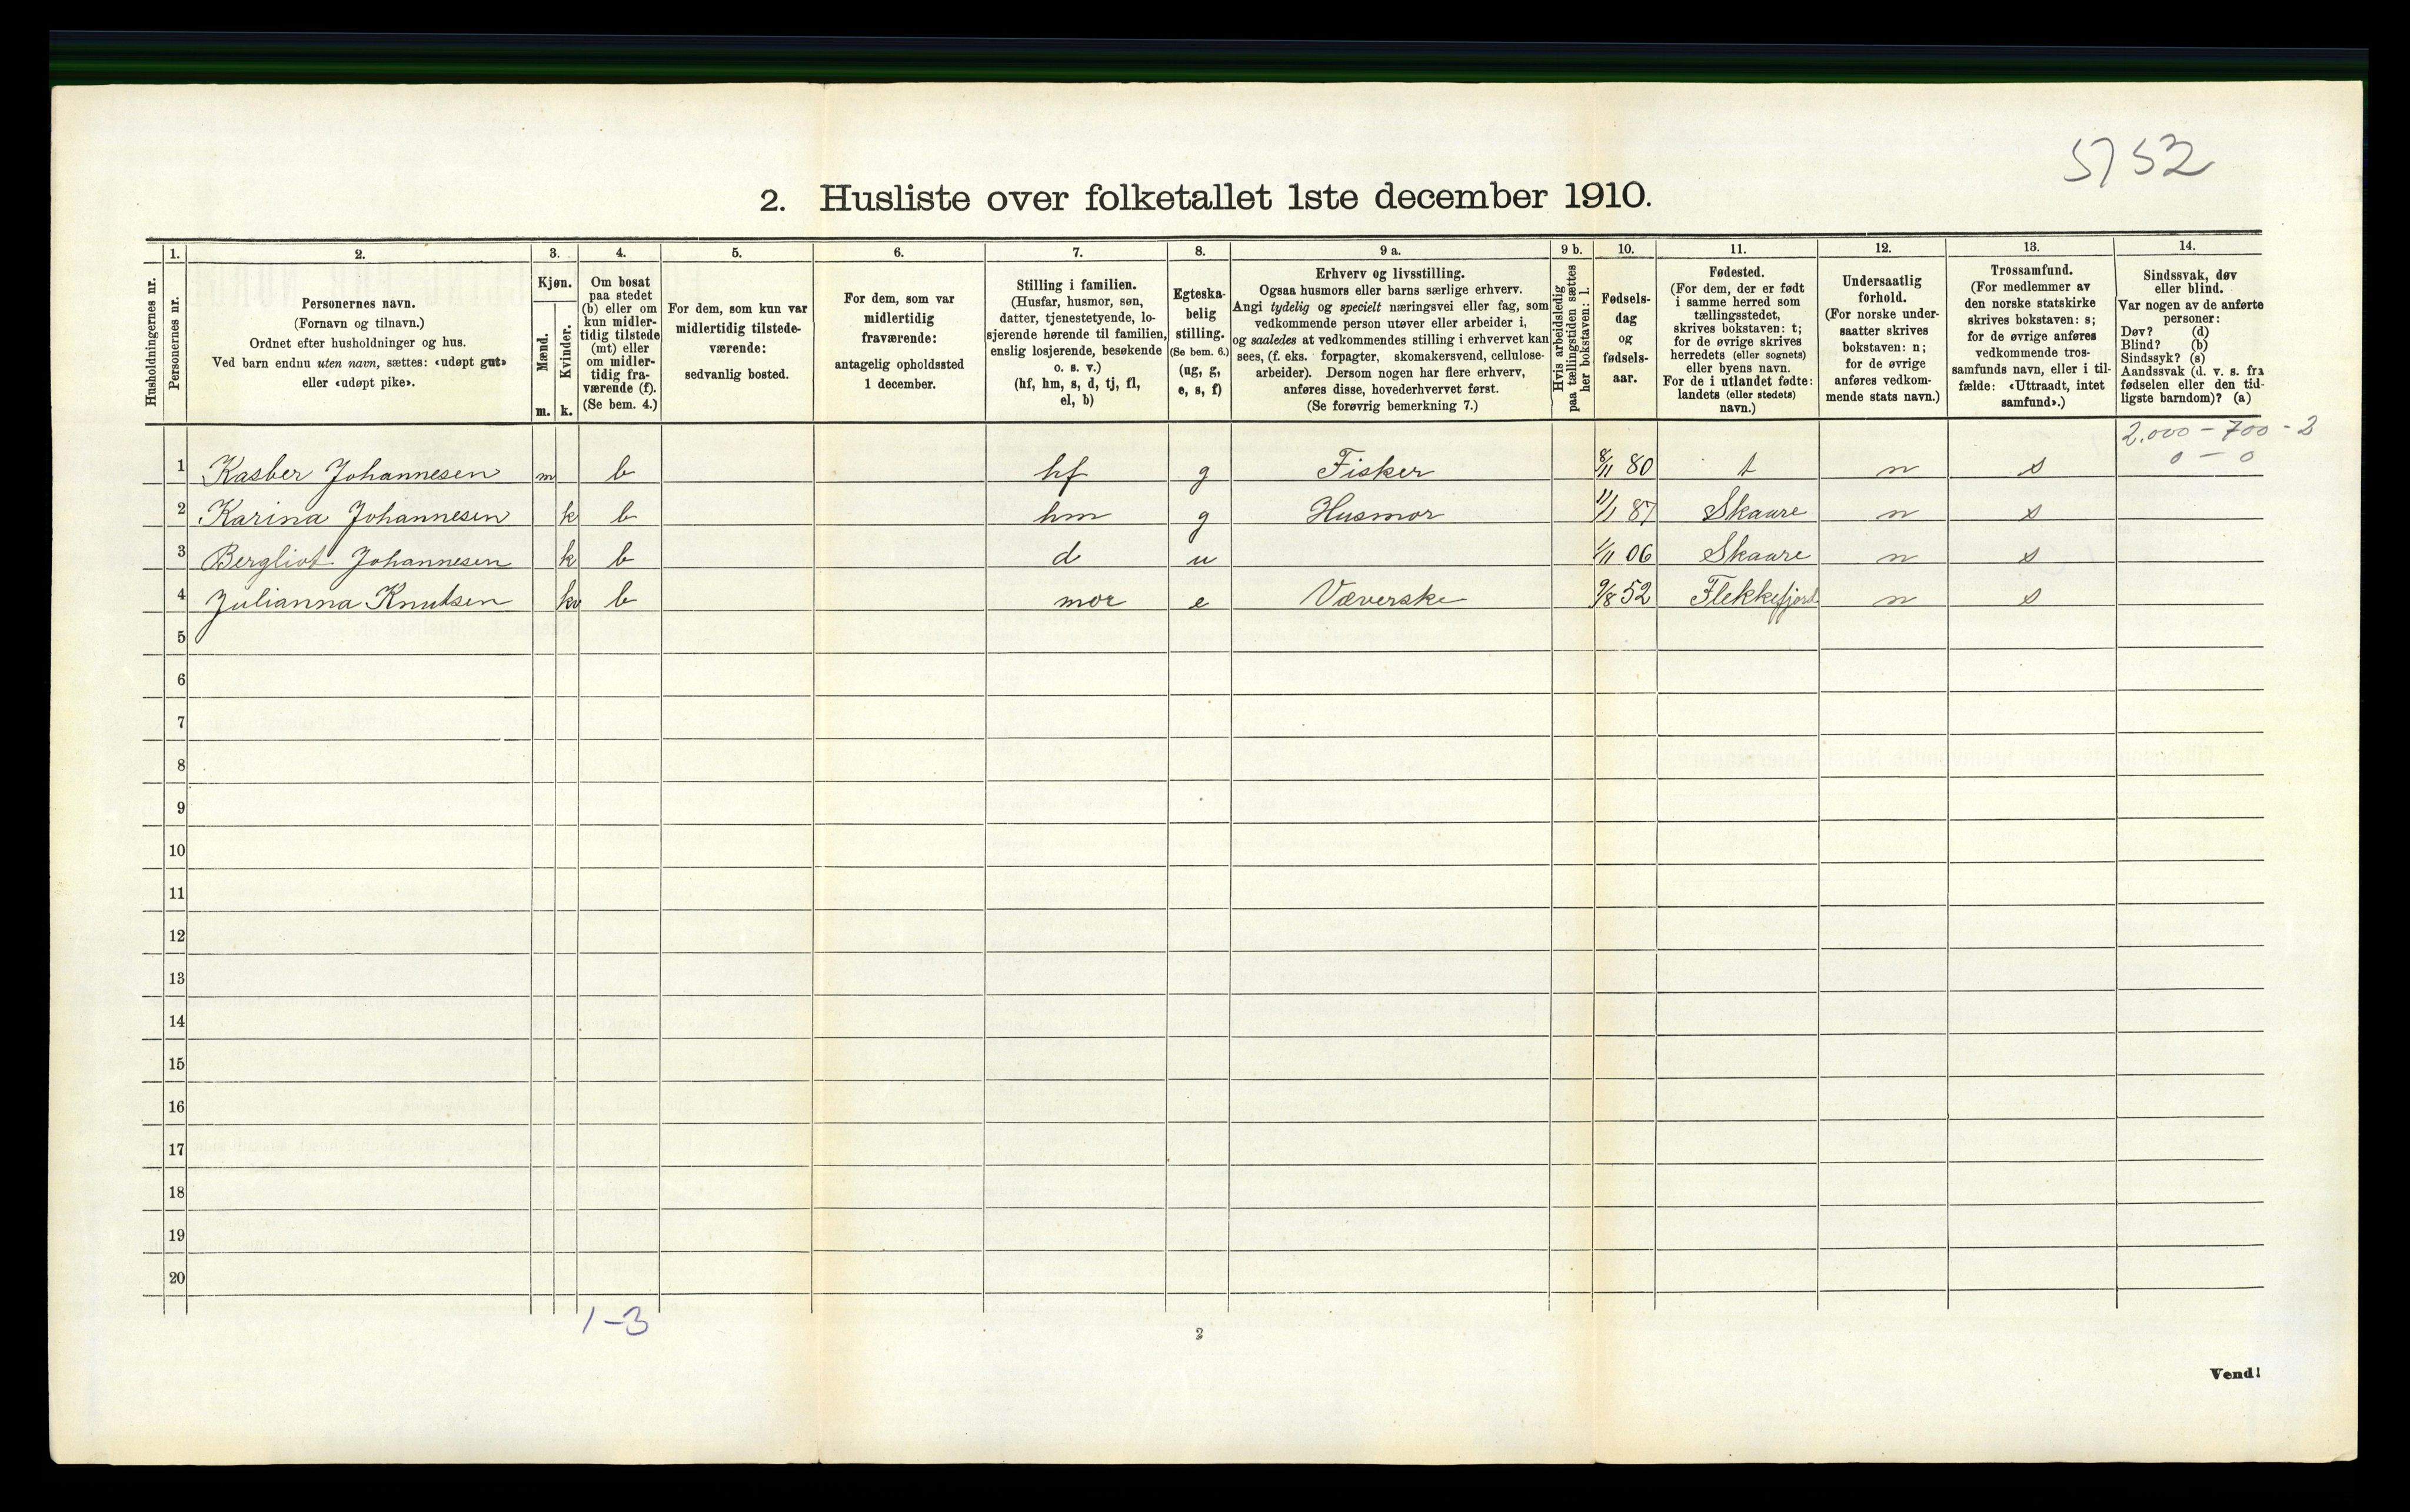 5752
2. Husliste over folketallet 1ste december 1910.
Husholdningernes nr.
1.
Personernes nr.
2.
Personernes navn.
(Fornavn og tilnavn.)
Ordnet efter husholdninger og hus.
Ved barn endnu uten navn, sættes: «udøpt gut»
eller «udøpt pike».
3.
Kjøn.
Mænd.
Kvinder.
m. k.
4.
Om bosat
paa stedet
(b) eller om
kun midler-
tidig tilstede
(mt) eller
om midler-
tidig fra-
værende (f).
(Se bem. 4.)
5.
For dem, som kun var
midlertidig tilstede-
værende:
sedvanlig bosted.
6.
For dem, som var
midlertidig
fraværende:
antagelig opholdssted
1 december.
7.
Stilling i familien.
(Husfar, husmor, søn,
datter, tjenestetyende, lo-
sjerende hørende til familien,
enslig losjerende, besøkende
o. s. v.)
(hf, hm, s, d, tj, fl,
el, b)
8.
Egteska-
belig
stilling.
(Se bem. 6.)
(ug, g,
e, s, f)
9 a.
Erhverv og livsstilling.
Ogsaa husmors eller barns særlige erhverv.
Angi tydelig og specielt næringsvei eller fag, som
vedkommende person utøver eller arbeider i,
og saaledes at vedkommendes stilling i erhvervet kan
sees, (f. eks. forpagter, skomakersvend, cellulose-
arbeider). Dersom nogen har flere erhverv,
anføres disse, hovederhvervet først.
(Se forøvrig bemerkning 7.)
9 b.
Hvis arbeidsledig
paa tællingstiden sættes
her bokstaven: l.
10.
Fødsels-
dag
og
fødsels-
aar.
11.
Fødested.
(For dem, der er født
i samme herred som
tællingsstedet,
skrives bokstaven: t;
for de øvrige skrives
herredets (eller sognets)
eller byens navn.
For de i utlandet fødte:
landets (eller stedets)
navn.)
12.
Undersaatlig
forhold.
(For norske under-
saatter skrives
bokstaven: n;
for de øvrige
anføres vedkom-
mende stats navn.)
13.
Trossamfund.
(For medlemmer av
den norske statskirke
skrives bokstaven: s;
for de øvrige anføres
vedkommende tros-
samfunds navn, eller i til-
fælde: «Uttraadt, intet
samfund».)
14.
Sindssvak, døv
eller blind.
Var nogen av de anførte
personer:
Døv? (d)
Blind? (b)
Sindssyk? (s)
Aandssvak (d. v. s. fra
fødselen eller den tid-
ligste barndom)? (a)
2.000 - 700 - 2
0 - 0
1 Kasber Johannesen m b hf g Fisker 8/11 80 t n s
2 Karina Johannesen k b hm g Husmor 11/1 87 Skaare n s
3 Bergliot Johannesen k b d u 1/11 06 Skaare n s
4 Julianna Knutsen kv b mor e Væverske 9/8 52 Flekkefjord n s
5
6
7
8
9
10
11
12
13
14
15
16
17
18
19
20
1-3
2
Vend!